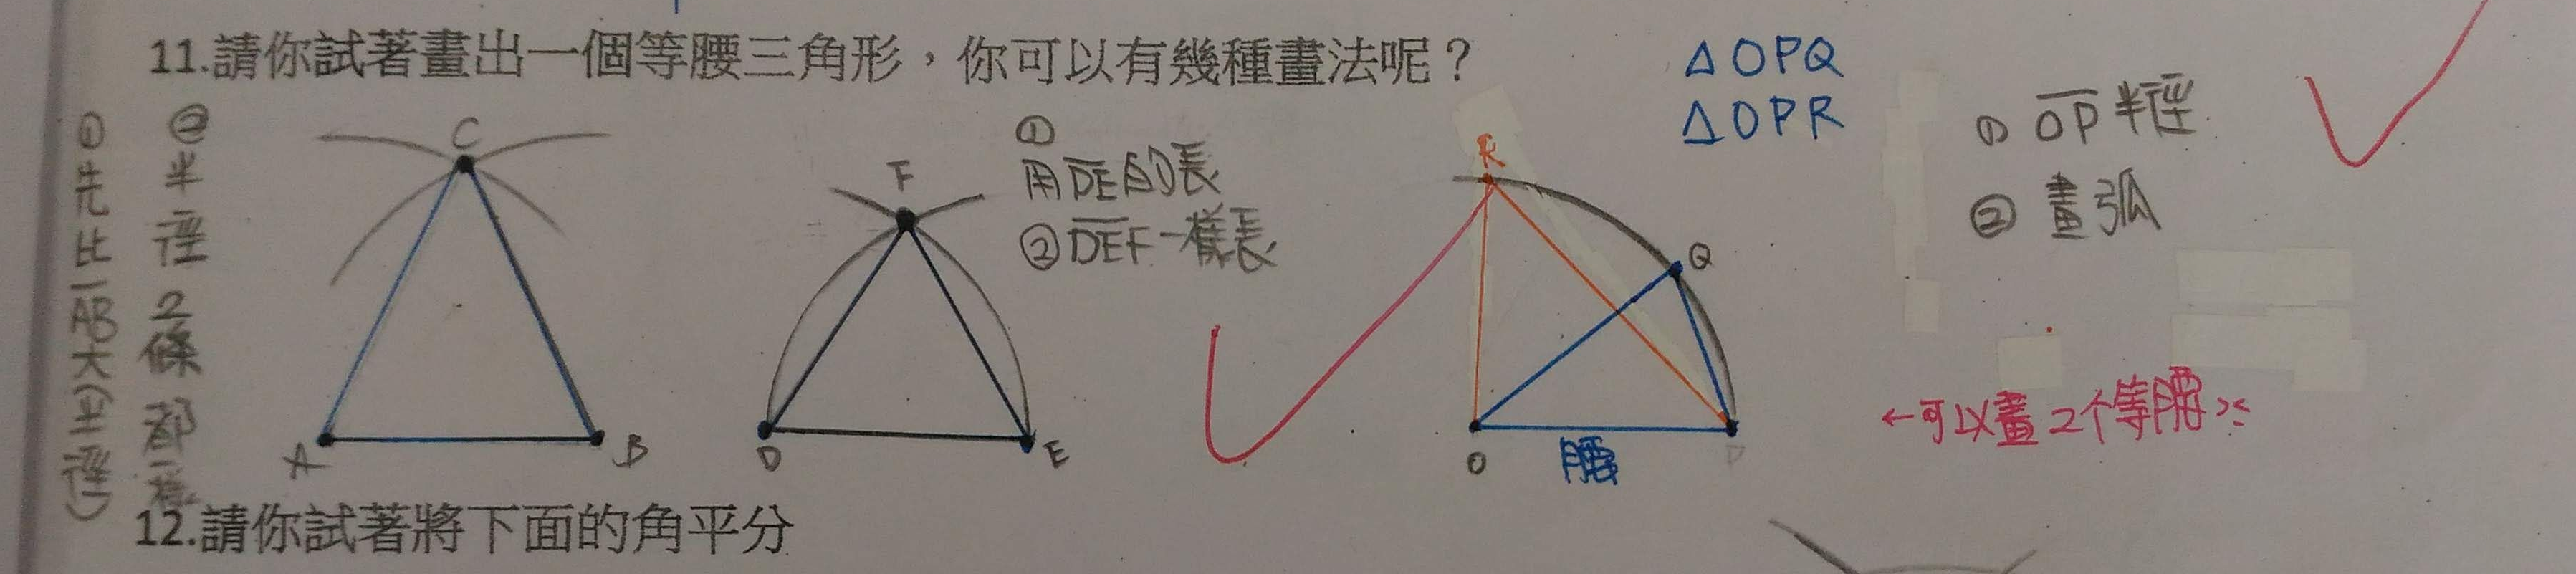 11.請你試著畫出一個等腰三角形，你可以有幾種畫法呢？
①先比AB大(半徑)
②半徑2條都一樣
C
A
B
F
D
E
①
用DE的長
②DEF一樣長
R
Q
O
P
腰
△OPQ
△OPR
① OP半徑
② 畫弧
←可以畫2个等腰
12.請你試著將下面的角平分